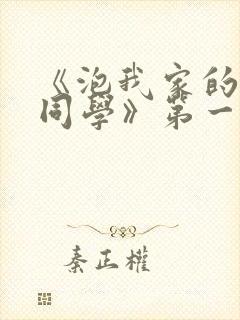 《泡我家的
同學》第一
秦正權